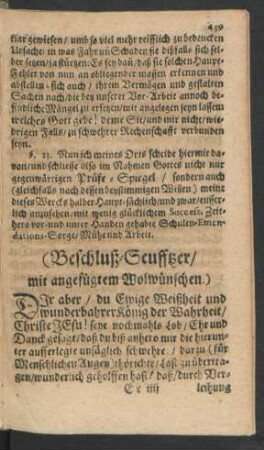 439
klar gewiesen / umb so viel mehr reifflich zu bedencken
Ursache: in was Fahr uñ Schaden sie dißfalls sich selber
setzen / ja stürtzen: Es sey dañ / daß sie solchen Haupt-
Fehler von nun an obligender massen erkennen und
abstellen / sich auch / ihrem Vermögen und gestalten
Sachen nach / die bey unserer Vor-Arbeit annoch be-
findliche Mängel zu ersetzen / mit angelegen seyn lassen
welches Gott gebe! deme Sie / und mir nicht / wie-
drigen Falls / zu schwehrer Rechenschafft verbunden
seyn.
§. 11. Nun ich meines Orts scheide hiermit da-
van / und schliesse also im Nahmen Gottes nicht nur
gegenwärtigen Prüfe-Spiegel / sondern auch
(gleichfalls nach dessen bestimmigen Willen) meine
dieses Wercks halber Haupt-sächlich / und zwar / eusser-
lich anzusehen / mit wenig glücklichem Success, Zeit-
hero vor- und unter Handen gehabte Schulen-Emen-
dations-Sorge / Mühe und Arbeit.
(Beschluß-Seufftzer /
mit angefügtem Wolwünschen.)
DIr aber / du Ewige Weißheit und
wunderbahrer König der Wahrheit /
Christe JEsu! seye nochmahls Lob / Ehr und
Danck gesagt / daß du biß anhero mir die hierun-
ter aufferlegte unsäglich schwehre / darzu (für
Menschlichen Augen) thörichte / Last zu übertra-
gen / wunderlich geholffen hast / daß / durch Ver-
E e iiij
leihung